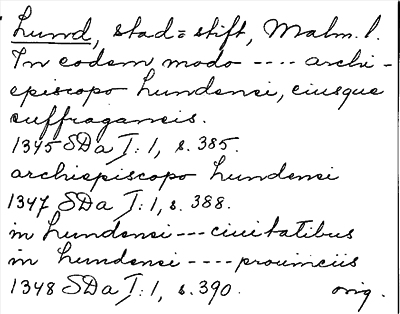 Lund, stad = stift, Malm. l.
In eodem modo ---- archi-
episcopo Lundensi, eiusque
suffraganeis.
1345 SDa I: 1, s. 385.
archiepiscopo Lundensi
1347 SDa I: 1, s. 388.
in Lundensi --- ciuitatibus
in Lundensi ---- prouinciis
1348 SDa I: 1, s. 390. orig.